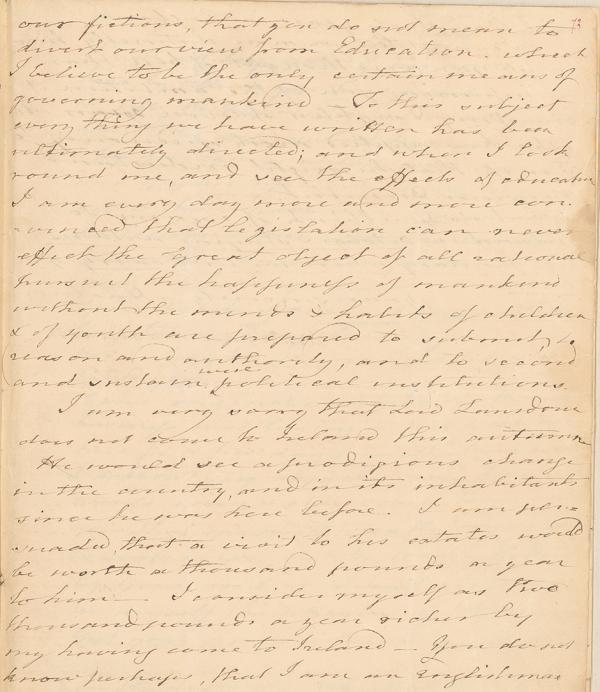 our fictions, that you do not mean to 73
divert our view from Education. which
I believe to be the only certain means of
governing mankind — To this subject
every thing we have written has been
ultimately directed; and when I look
round me, and see the effects of education
I am every day more and more con-
vinced that legislation can never
effect the great object of all rational
pursuit the happiness of mankind
without the minds & habits of children
& of youth are prepared to submit to
reason and authority, and to second
and sustain wise political institutions.
I am very sorry that Lord Lansdown
does not come to Ireland this autumn
He would see a prodigious change
in the country, and in its inhabitants
since he was here before. I am per-
suaded, that a visit to his estates would
be worth a thousand pounds a year
to him — I consider myself as two
thousand pounds a year richer by
my having come to Ireland — You do not
know perhaps, that I am an Englishman